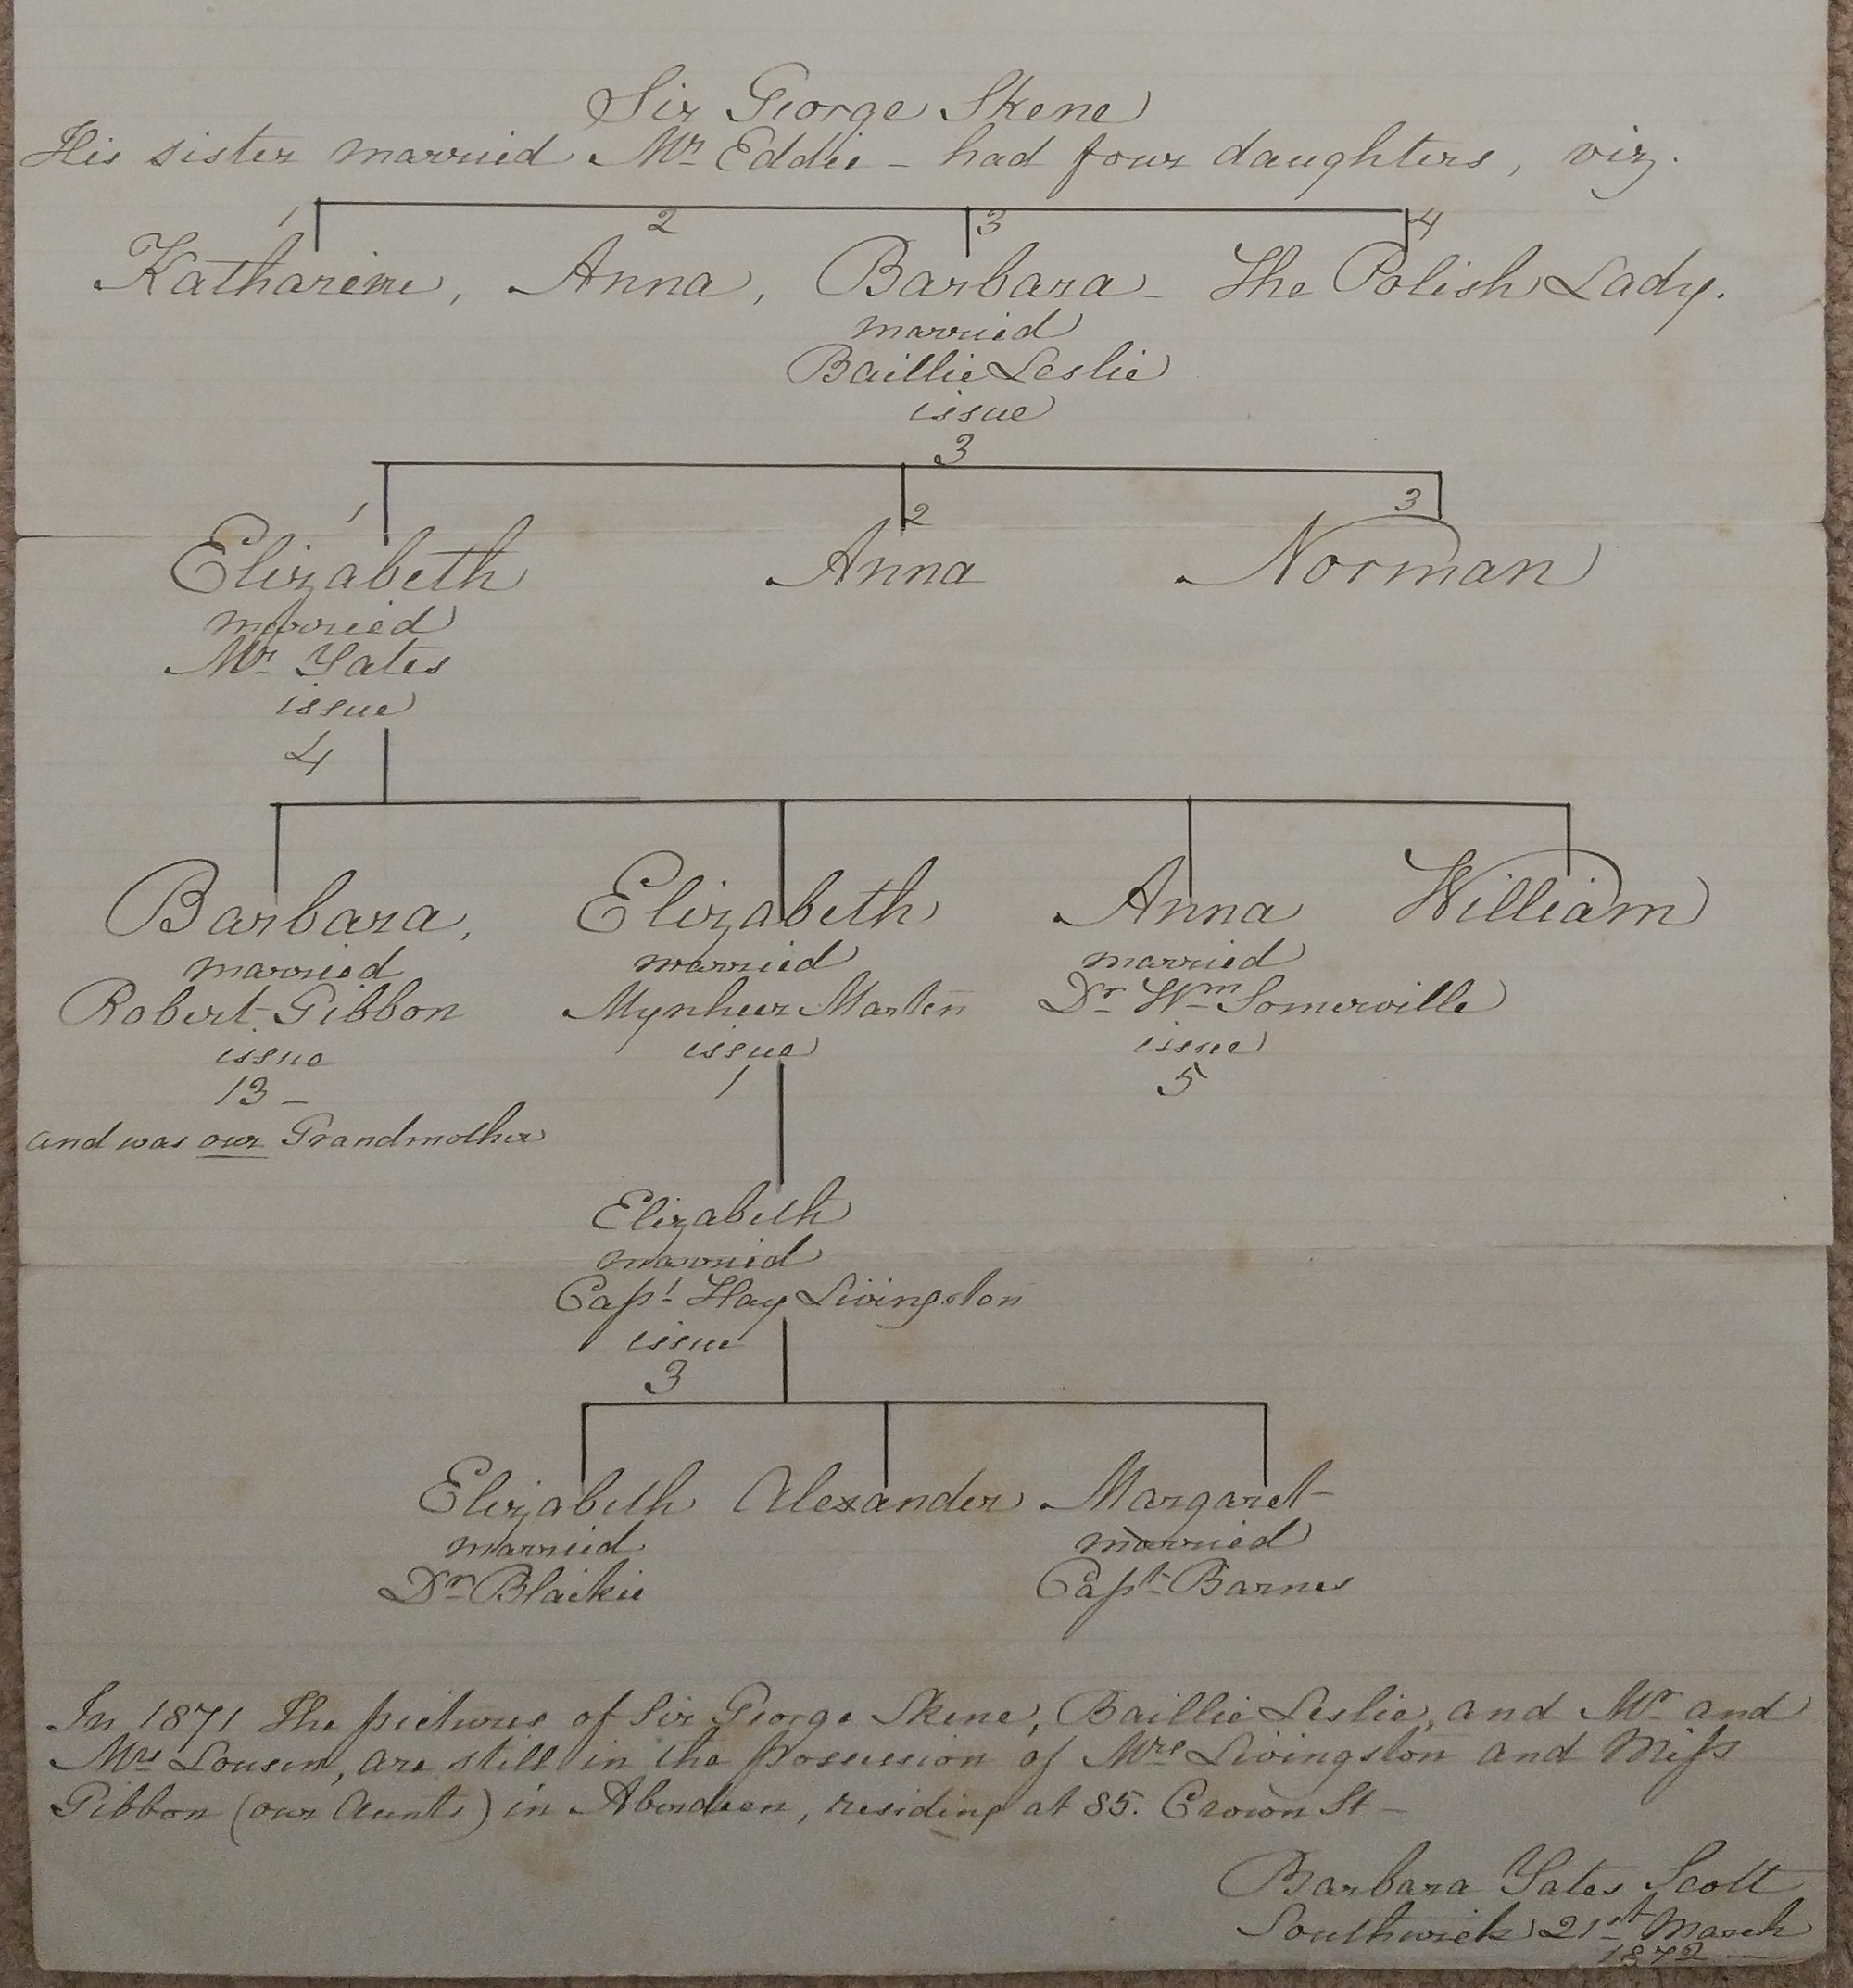 Sir George Skene
His sister married Mr Eddie – had four daughters, viz.
1 2 3 4
Katharine, Anna, Barbara – The Polish Lady.
married
Baillie Leslie
issue
3
1 2 3
Elizabeth Anna Norman
married
Mr Yates
issue
4
Barbara, Elizabeth Anna William
married married married
Robert Gibbon Mynheer Marten Dr Wm Somerville
issue issue issue
13 – 1 5
and was our Grandmother
Elizabeth
married
Capt Hay Livingston
issue
3
Elizabeth Alexander Margaret
married married
Dr Blaikie Capt Barnes
In 1871 The pictures of Sir George Skene, Baillie Leslie, and Mr and
Mrs Lousen, are still in the possession of Mrs Livingston and Miss
Gibbon (our Aunts) in Aberdeen, residing at 85. Crown St –
Barbara Yates Scott
Southwick 21st March
1872